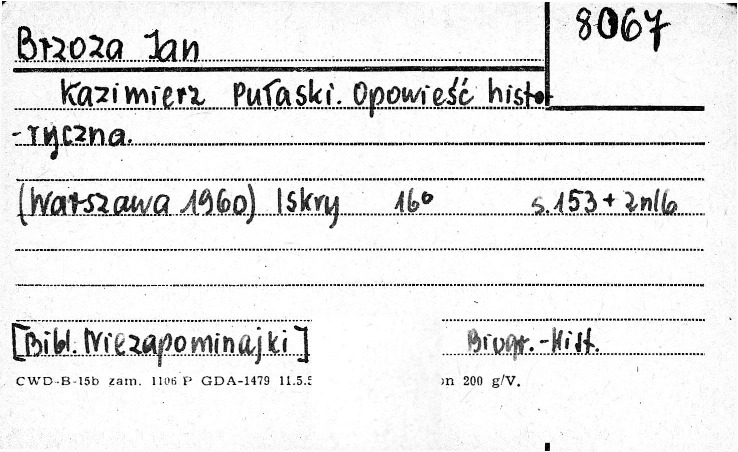 8067
Brzoza Jan
Kazimierz Pułaski. Opowieść histo-
-ryczna.
(Warszawa 1960) Iskry 16° s. 153 + 2nlb
[Bibl. Niezapominajki] Biogr.-Hist.
CWD-B-15b zam. 1106 P GDA-1479 11.5.5 on 200 g/V.